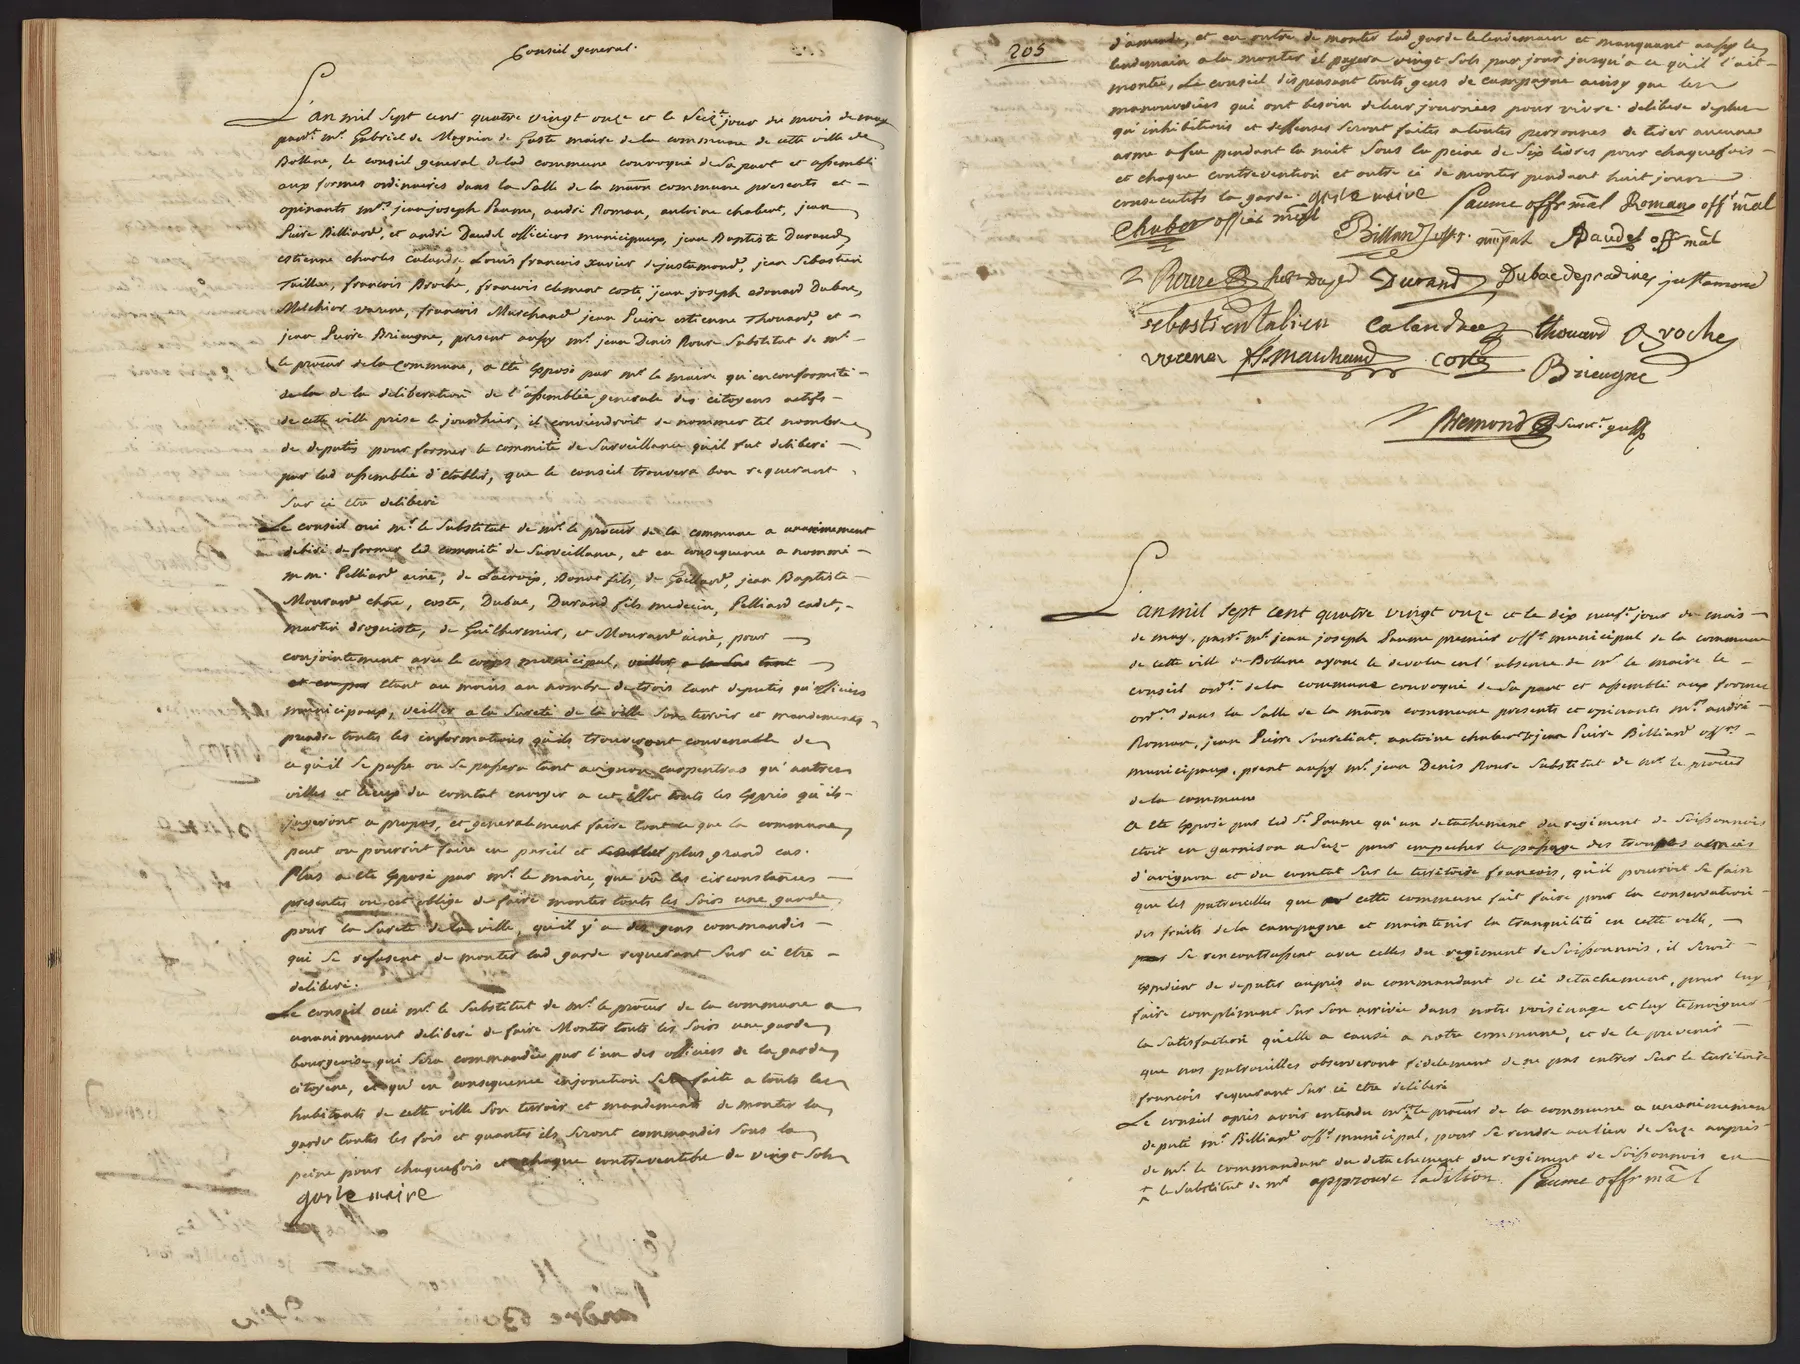 Conseil general.
L'an mil sept cent quatre vingt onze et le seize.e jour du mois de may
pard.t m.r Gabriel de Magnin de Gaste maire de la commune de cette ville de
Bollene, le conseil general de lad commune convoqué de sa part et assemblé
aux formes ordinaires dans la salle de la maon commune presents et
opinants m.rs jean joseph Paume, andré Roman, antoine chabert, jean
Pierre Billiard, et andré Daudel officiers municipaux, jean Baptiste Durand
estienne charles Calandre, Louis francois xavier dejustamond, jean sebastien
Taillen, francois Broche, francois clement coste, jean joseph edouard Dubac,
Melchior varene, francois Marchand jean Pierre estienne Thouard, et
jean Pierre Brieugne, present aussy m.r jean Denis Roure substitut de m.r
le procur de la Commune, a eté exposé par m.r le maire qu'en conformité
de la de la deliberation de l'assemblée generale des citoyens actifs
de cette ville prise le jourdhier, il conviendroit de nommer tel nombre
de deputés pour former le committé de surveillance qu'il fut deliberé
par lad assemblée d'etablir, que le conseil trouvera bon requerant
sur ci etre deliberé
Le conseil oui m.r le substitut de m.r le procur de la commune a unanimement
deliberé de former led committé de surveillance, et en consequence a nommé
m m. Pelliard ainé, de Lacroix, Bonot fils, de Gaillard, jean Baptiste
Mourard chne, coste, Dubac, Durand fils medecin, Pelliard cadet,
martin droguiste, de Guilhermier, et Mourard ainé, pour
conjointement avec le corps municipal, veiller a la sur tant
et en par etant au moins au nombre de trois tant deputés qu'officiers
municipaux, veiller a la sureté de la ville son terroir et mandement,
prendre toutes les informations qu'ils trouveront convenable de
ce qu'il se passe ou se passera tant avignon carpentras qu'autres
villes et lieux du comtat envoyer a cet effet touts les exprés qu'ils
jugeront a propos, et generalement faire tout ce que la commune
peut ou pourroit faire en pareil et plus grand cas.
Plus a eté exposé par m.r le maire, que vû les circonstances
presentes on est obligé de faire monter touts les soirs une garde
pour la sureté de la ville, qu'il y a des gens commandés
qui se refusent de monter lad garde requerant sur ci etre
deliberé.
Le conseil oui m.r le substitut de m.r le procur de la commune a
unanimement deliberé de faire monter touts les soirs une garde
bourgeoise qui sera commandée par l'un des officiers de la garde
citoyene, et qu'en consequence injonction sera faite a touts les
habitants de cette ville son terroir et mandement de monter la
garde toutes les fois et quantes ils seront commandés sous la
peine pour chaque fois et chaque contrevention de vingt sols
gaste maire
205
d'amende, et en outre de monter lad garde le lendemain et manquant aussy le
lendemain a la monter il payera vingt sols par jour jusqu'a ce qu'il l'ait
montée, Le conseil dispensant touts gens de campagne ainsy que les
manouvriers qui ont besoin de leur journées pour vivre. delibere de plus
qu'inhibitions et deffenses seront faites a toutes personnes de tirer aucune
arme a feu pendant la nuit sous la peine de six livres pour chaque fois
et chaque contrevention et outre ci de monter pendant huit jours
consecutifs la garde. gaste maire Paume offr mal Roman off.r mal
Chabert officié mpl Billiard offr. mupal Daudel off mal
Roure Durand Dubac depradines justamond
sebastien talien Calandre thouard Broche
varene fs marchand coste Brieugne
Bremond secr.e
L'an mil sept cent quatre vingt onze et le dix neuf.e jour du mois
de may, pard.t m.r jean joseph Paume premier off.r municipal de la commune
de cette ville de Bollene ayant le devolu en l'absence de m.r le maire le
conseil ord.re de la commune convoqué de sa part et assemblé aux formes
ord.res dans la salle de la maon commune presents et opinants m.rs andré
Roman, jean Pierre Soureliat, antoine chabert et jean Pierre Billiard off.rs
municipaux, prent aussy m.r jean Denis Roure substitut de m.r le procur
de la commune
a eté exposé par led s.r Paume qu'un detachement du regiment de Soissonnois
etoit en garnison a Suze pour empecher le passage des troupes armées
d'avignon et du comtat sur le territoire francois, qu'il pourroit se faire
que les patrouilles que cette commune fait faire pour la conservation
des fruits de la campagne et maintenir la tranquilité en cette ville,
se rencontrassent avec celles du regiment de Soissonnois, il seroit
expedient de deputer auprés du commandant de ce detachement, pour luy
faire compliment sur son arrivée dans notre voisinage et luy temoigner
la satisfaction qu'elle a causé a notre commune, et de le prevenir
que nos patrouilles observeront fidelement de ne pas entrer sur le territoire
francois requerant sur ci etre deliberé
Le conseil aprés avoir entendu m.r le procur de la commune a unanimement
deputé m.r Billiard off.r municipal, pour se rendre au lieu de Suze auprés
de m.r le commandant du detachement du regiment de Soissonnois en
le substitut de m.r approuvé ladition. Paume offr mal